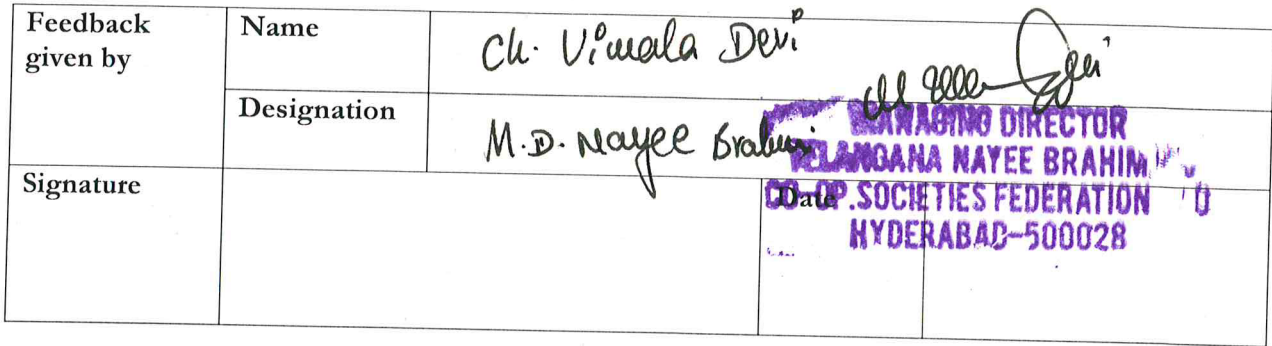 Feedback given by
Name
Ch. Vimala Devi
Designation
M.D. Nayee Brahmi
MANAGING DIRECTOR
TELANGANA NAYEE BRAHIM
CO-OP.SOCIETIES FEDERATION
HYDERABAD-500028
Signature
Date